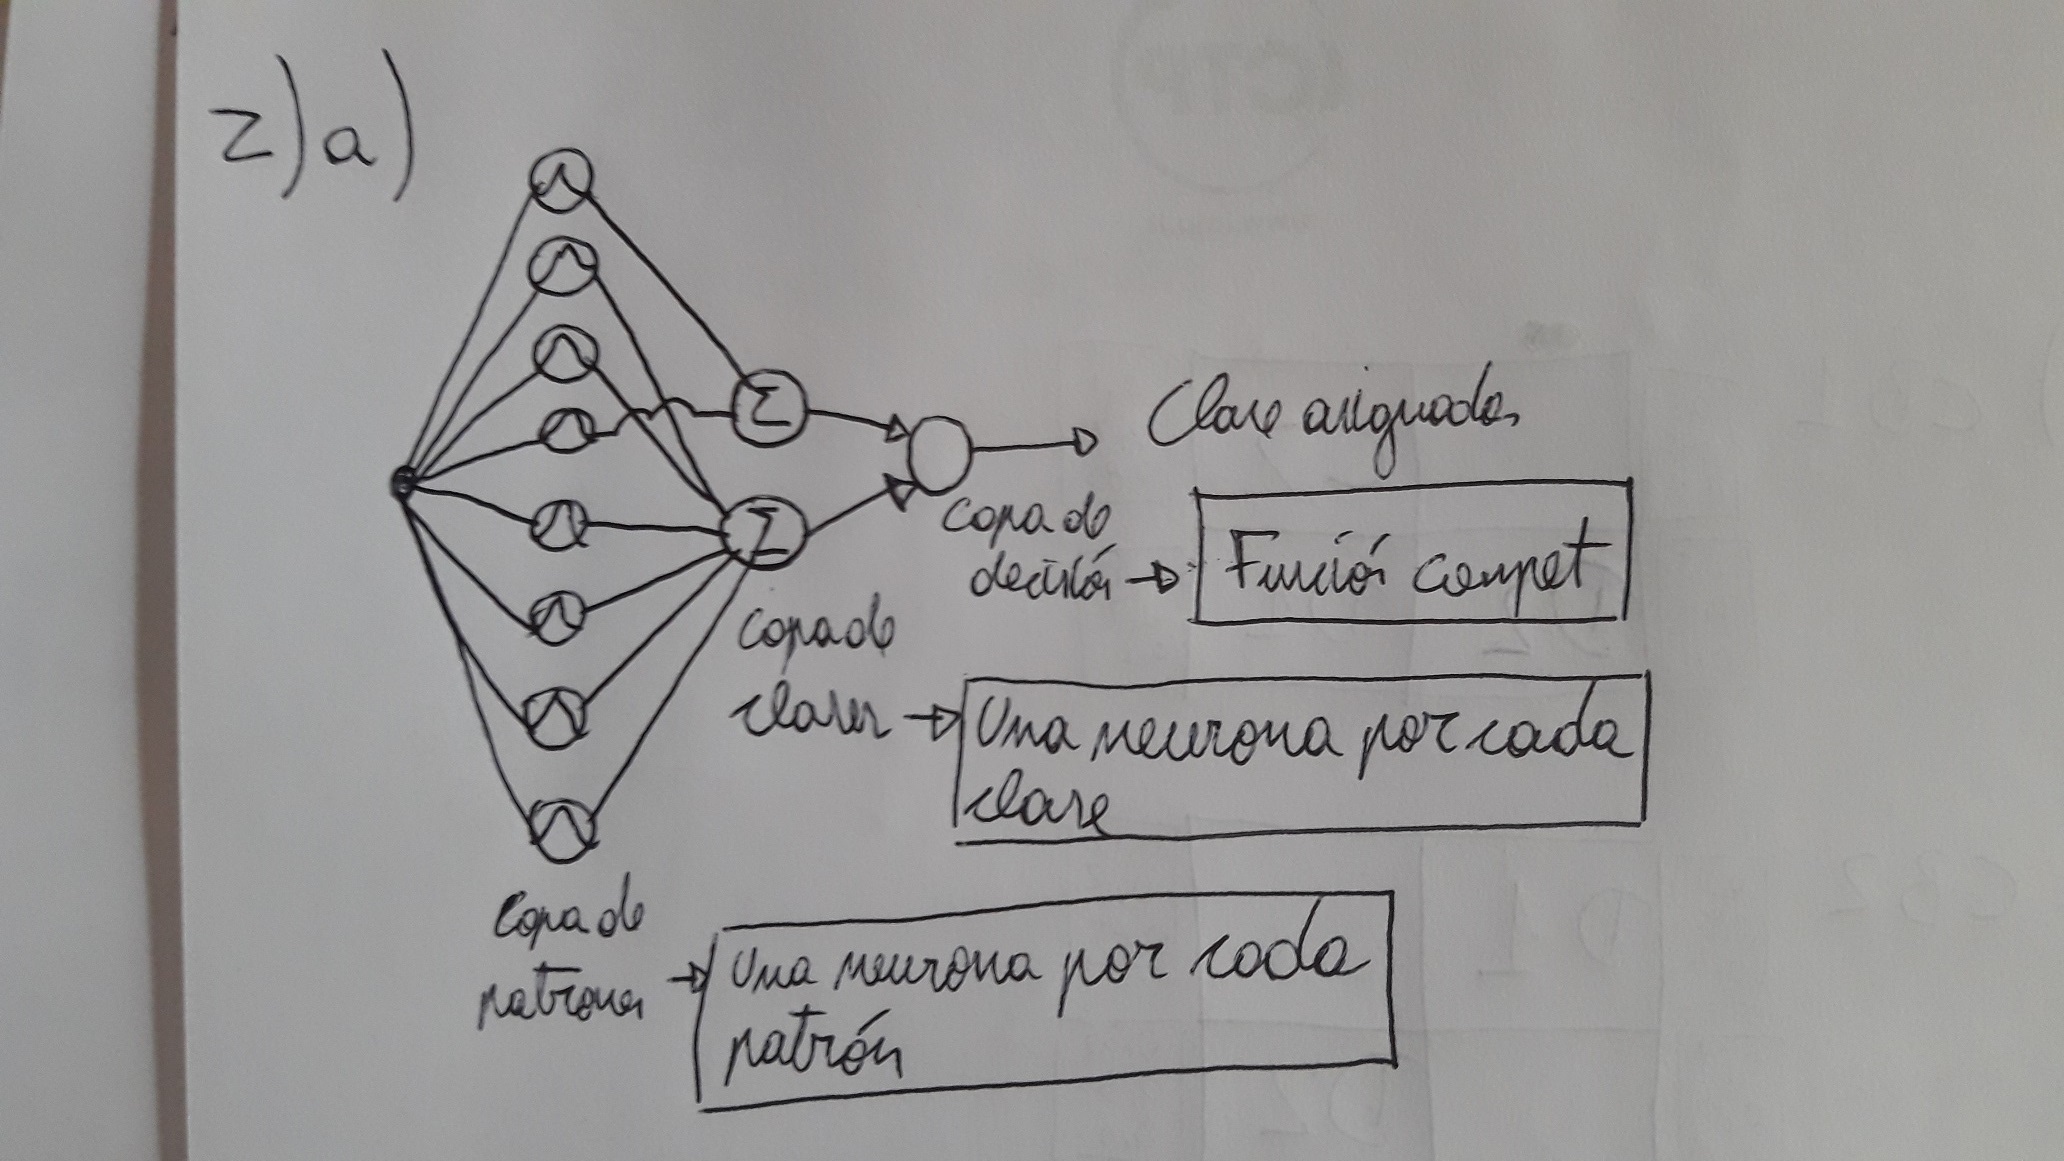 2) a)
Σ
Clase asignada
Σ
capa de
decisión → Función compet
capa de
clases → Una neurona por cada
clase
Capa de
patrones → Una neurona por cada
patrón